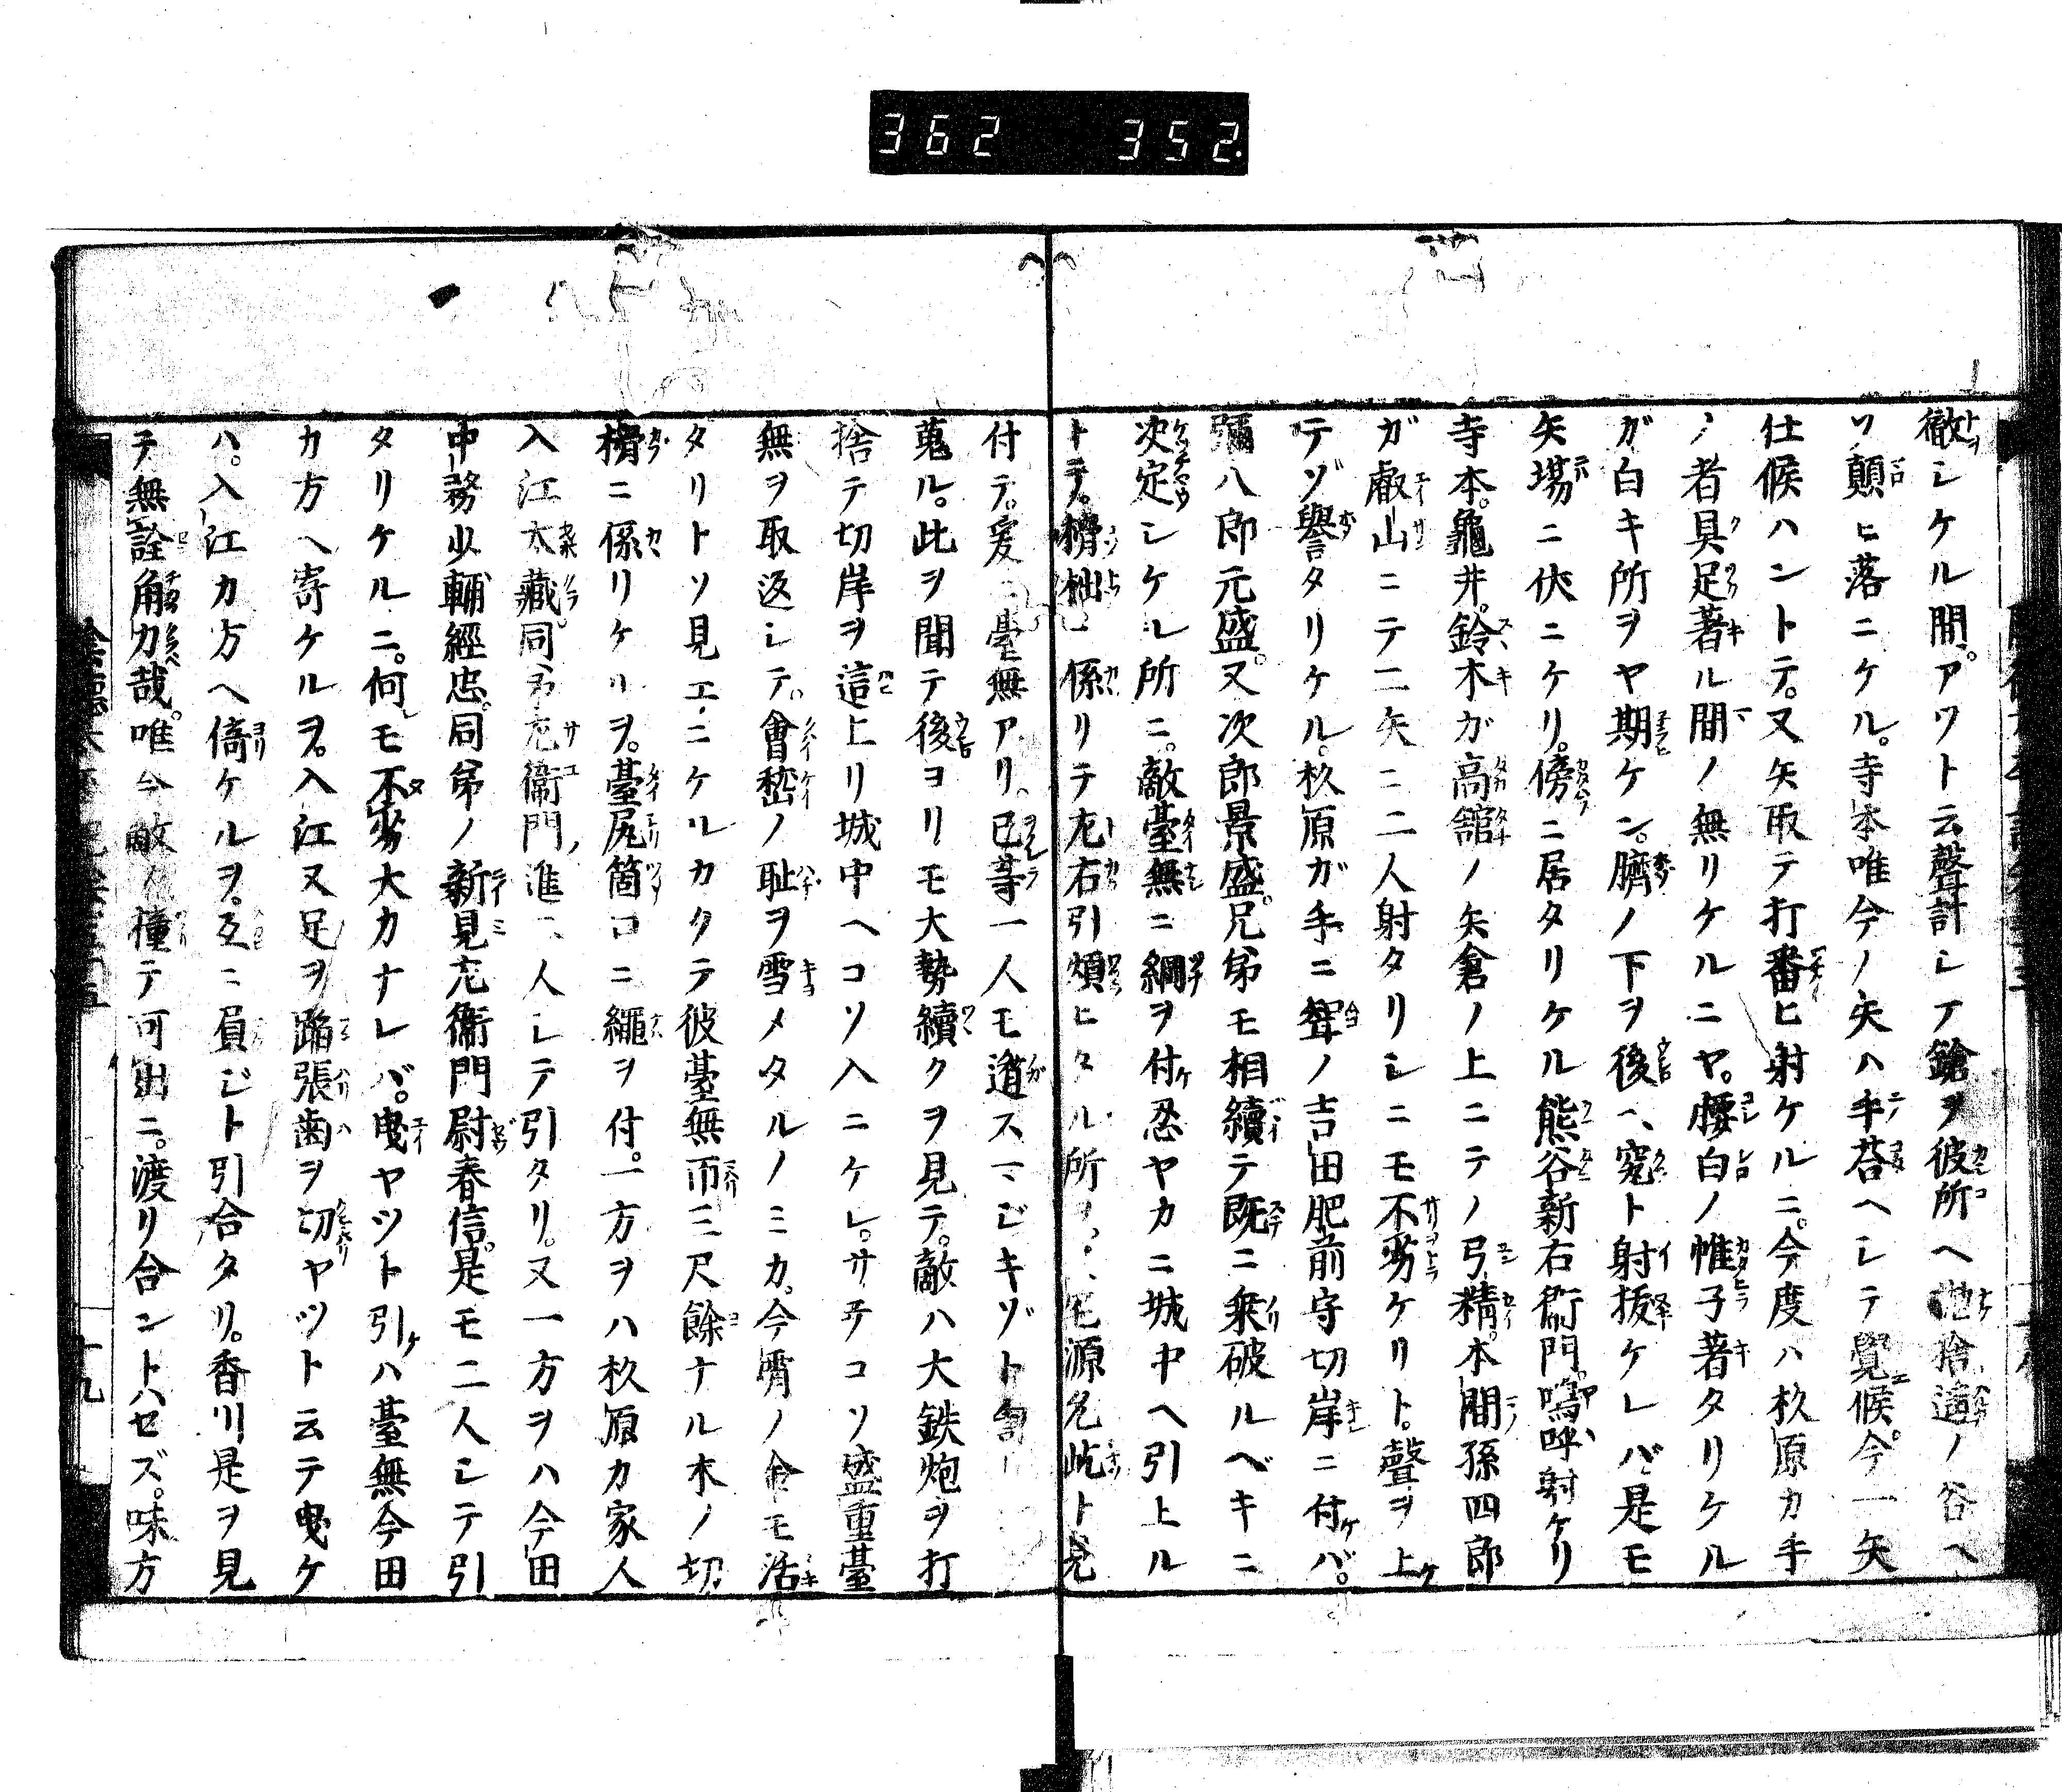 362 352.
徹シケル間。アワト云聲計シテ鎗ヲ彼所ヘ 捨 ノ谷ヘ
ソ顛ヒ落ニケル。寺本唯今ノ矢ハ手荅ヘシテ覺候。今一矢
仕候ハントテ。又矢取テ打番ヒ射ケルニ。今度ハ杦原カ手
ノ者具足著ル間ノ無リケルニヤ。腰白ノ帷子著タリケル
ガ白キ所ヲヤ期ケン。臍ノ下ヲ後ヘ窕ト射拔ケレバ是モ
矢塲ニ伏ニケリ。傍ニ居タリケル熊谷新右衛門。嗚呼射ケリ
寺本。龜井。鈴木が高舘ノ矢倉ノ上ニテノ弓精。本間孫四郎
ガ叡山ニテ二矢ニ二人射タリシニモ不劣ケリト。聲ヲ上ケ
テゾ譽タリケル。杦原ガ手ニ聟ノ吉田肥前守切岸ニ付ケバ。
彌八郎元盛。又次郎景盛。兄弟モ相續テ既ニ乗破ルベキニ
次定シケル所ニ。敵臺無ニ綱ヲ付忍ヤカニ城中ヘ引上ル
トテ。 係リテ左右引煩ヒタル所 源兵屹ト見
付テ。爰ニ臺無アリ。己等一人モ遁スマジキゾト
蒐ル。此ヲ聞テ後ヨリモ大勢續クヲ見テ。敵ハ大鉄炮ヲ打
捨テ切岸ヲ這上リ城中ヘコソ入ニケレ。サテコソ盛重臺
無ヲ取返シテ。會嵆ノ耻ヲ雪メタルノミカ。今霄ノ命モ活
タリトソ見エニケルカクテ彼臺無帀三尺餘ナル木ノ切
ニ係リケルヲ。臺尻筒口ニ繩ヲ付。一方ヲハ杦原カ家人
入江大藏同名左衞門進二人シテ引タリ。又一方ヲハ今田
中務少輔經忠。同弟ノ新見左衞門尉春信。是モ二人シテ引
タリケルニ。何レモ不劣大カナレバ。曳ヤツト引ケハ臺無今田
カ方ヘ寄ケルヲ。入江又足ヲ蹈張歯ヲ切ヤツト云テ曳ケ
ハ。入江カ方ヘ倚ケルヲ。互ニ負ジト引合タリ。香川是ヲ見
テ無詮角力哉。唯今敵 撞テ可出ニ。渡リ合ントハセズ。味方
十九